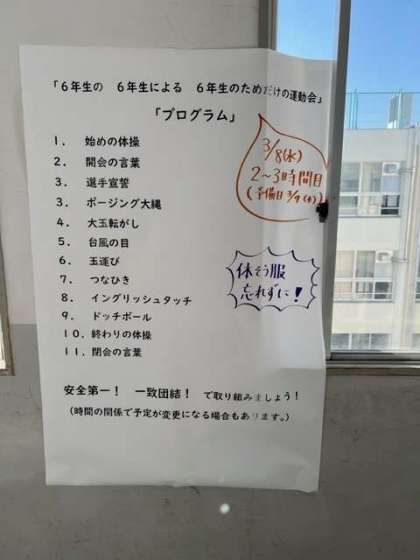 「６年生の　６年生による　６年生のためだけの運動会」
「プログラム」
１．　始めの体操
２．　開会の言葉
３．　選手宣誓
３．　ポージング大縄
４．　大玉転がし
５．　台風の目
６．　玉運び
７．　つなひき
８．　イングリッシュタッチ
９．　ドッチボール
１０．終わりの体操
１１．閉会の言葉
安全第一！　一致団結！　で取り組みましょう！
（時間の関係で予定が変更になる場合もあります。）
3/8(水)
2～3時間目
(予備日 3/9(木))
休そう服
忘れずに！